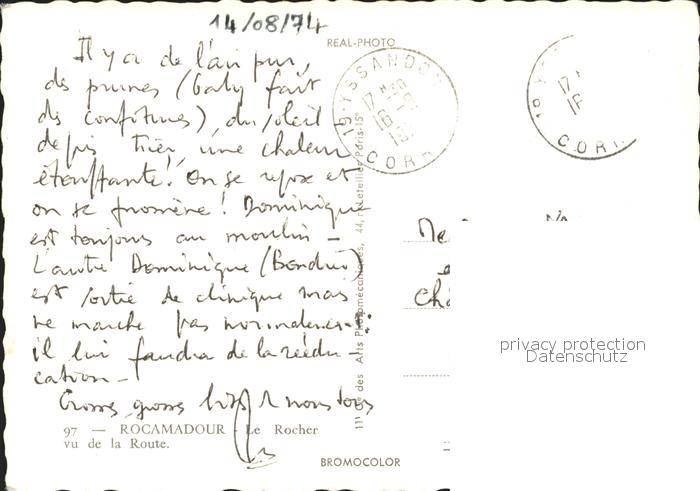 14/08/74
REAL-PHOTO
Il y a de l'air pur,
des prunes (Gaby fait
des confitures), du soleil
depuis hier, une chaleur
étouffante! On se repose et
on se promène! Dominique
est toujours au moulin -
L'autre Dominique
est sortie de clinique mais
ne marche pas normalement:
il lui faudra de la réédu-
cation -
Grosses, grosses bises de nous tous
97 — ROCAMADOUR - Le Rocher
vu de la Route.
BROMOCOLOR
19 YSSANDON
17 H
16
CORR
19 YS
17
16
CORR
11 des Arts Photomécaniques, 44, r. Letellier Paris-15e
Me
Châ
privacy protection
Datenschutz